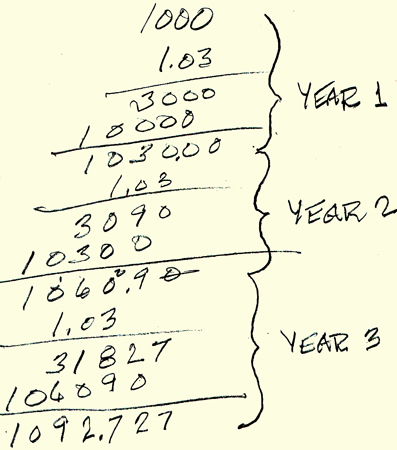 1000
1.03
3000
10000
1030.00
1.03
3090
10300
1060.90
1.03
31827
106090
1092.727
YEAR 1
YEAR 2
YEAR 3